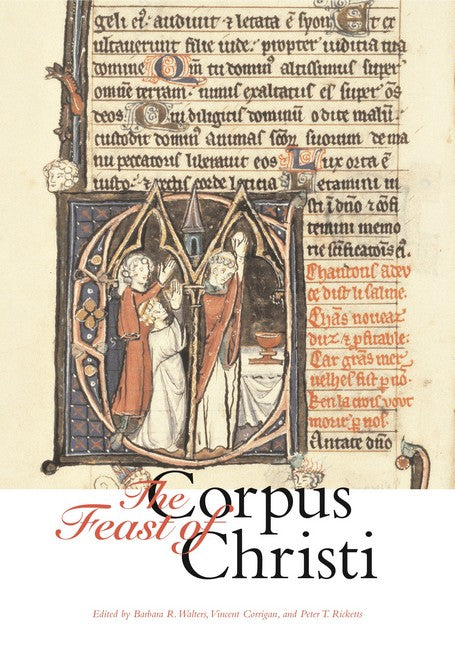 geli eī. audiuit ⁊ letata ē syon. Et ex
ultauerunt filie iude. propter iudicia tua
domine. Qm̄ tu dominꝰ altissimus super
omnē terram. nimis exaltatus es super oēs
deos. Qui diligitis dominū odite malū.
custodit dominꝰ animas sc̄oꝝ suorum de ma
nu peccatoris liberauit eos. Lux orta ē
iusto. ⁊ rectis corde leticia. Letamini iu
sti ī dn̄o ⁊ cōfi
temini memo
rie sc̄ificatōis eī.
Chantons a deu
ce dist li salme.
Chās noueaz
duz ⁊ ꝓfitable:
Car grās mer
uelhes fist ꝑ nō.
Ken la crois vout
morir ꝑ nos.
Cantate dn̄o
The Feast of
Corpus
Christi
Edited by Barbara R. Walters, Vincent Corrigan, and Peter T. Ricketts